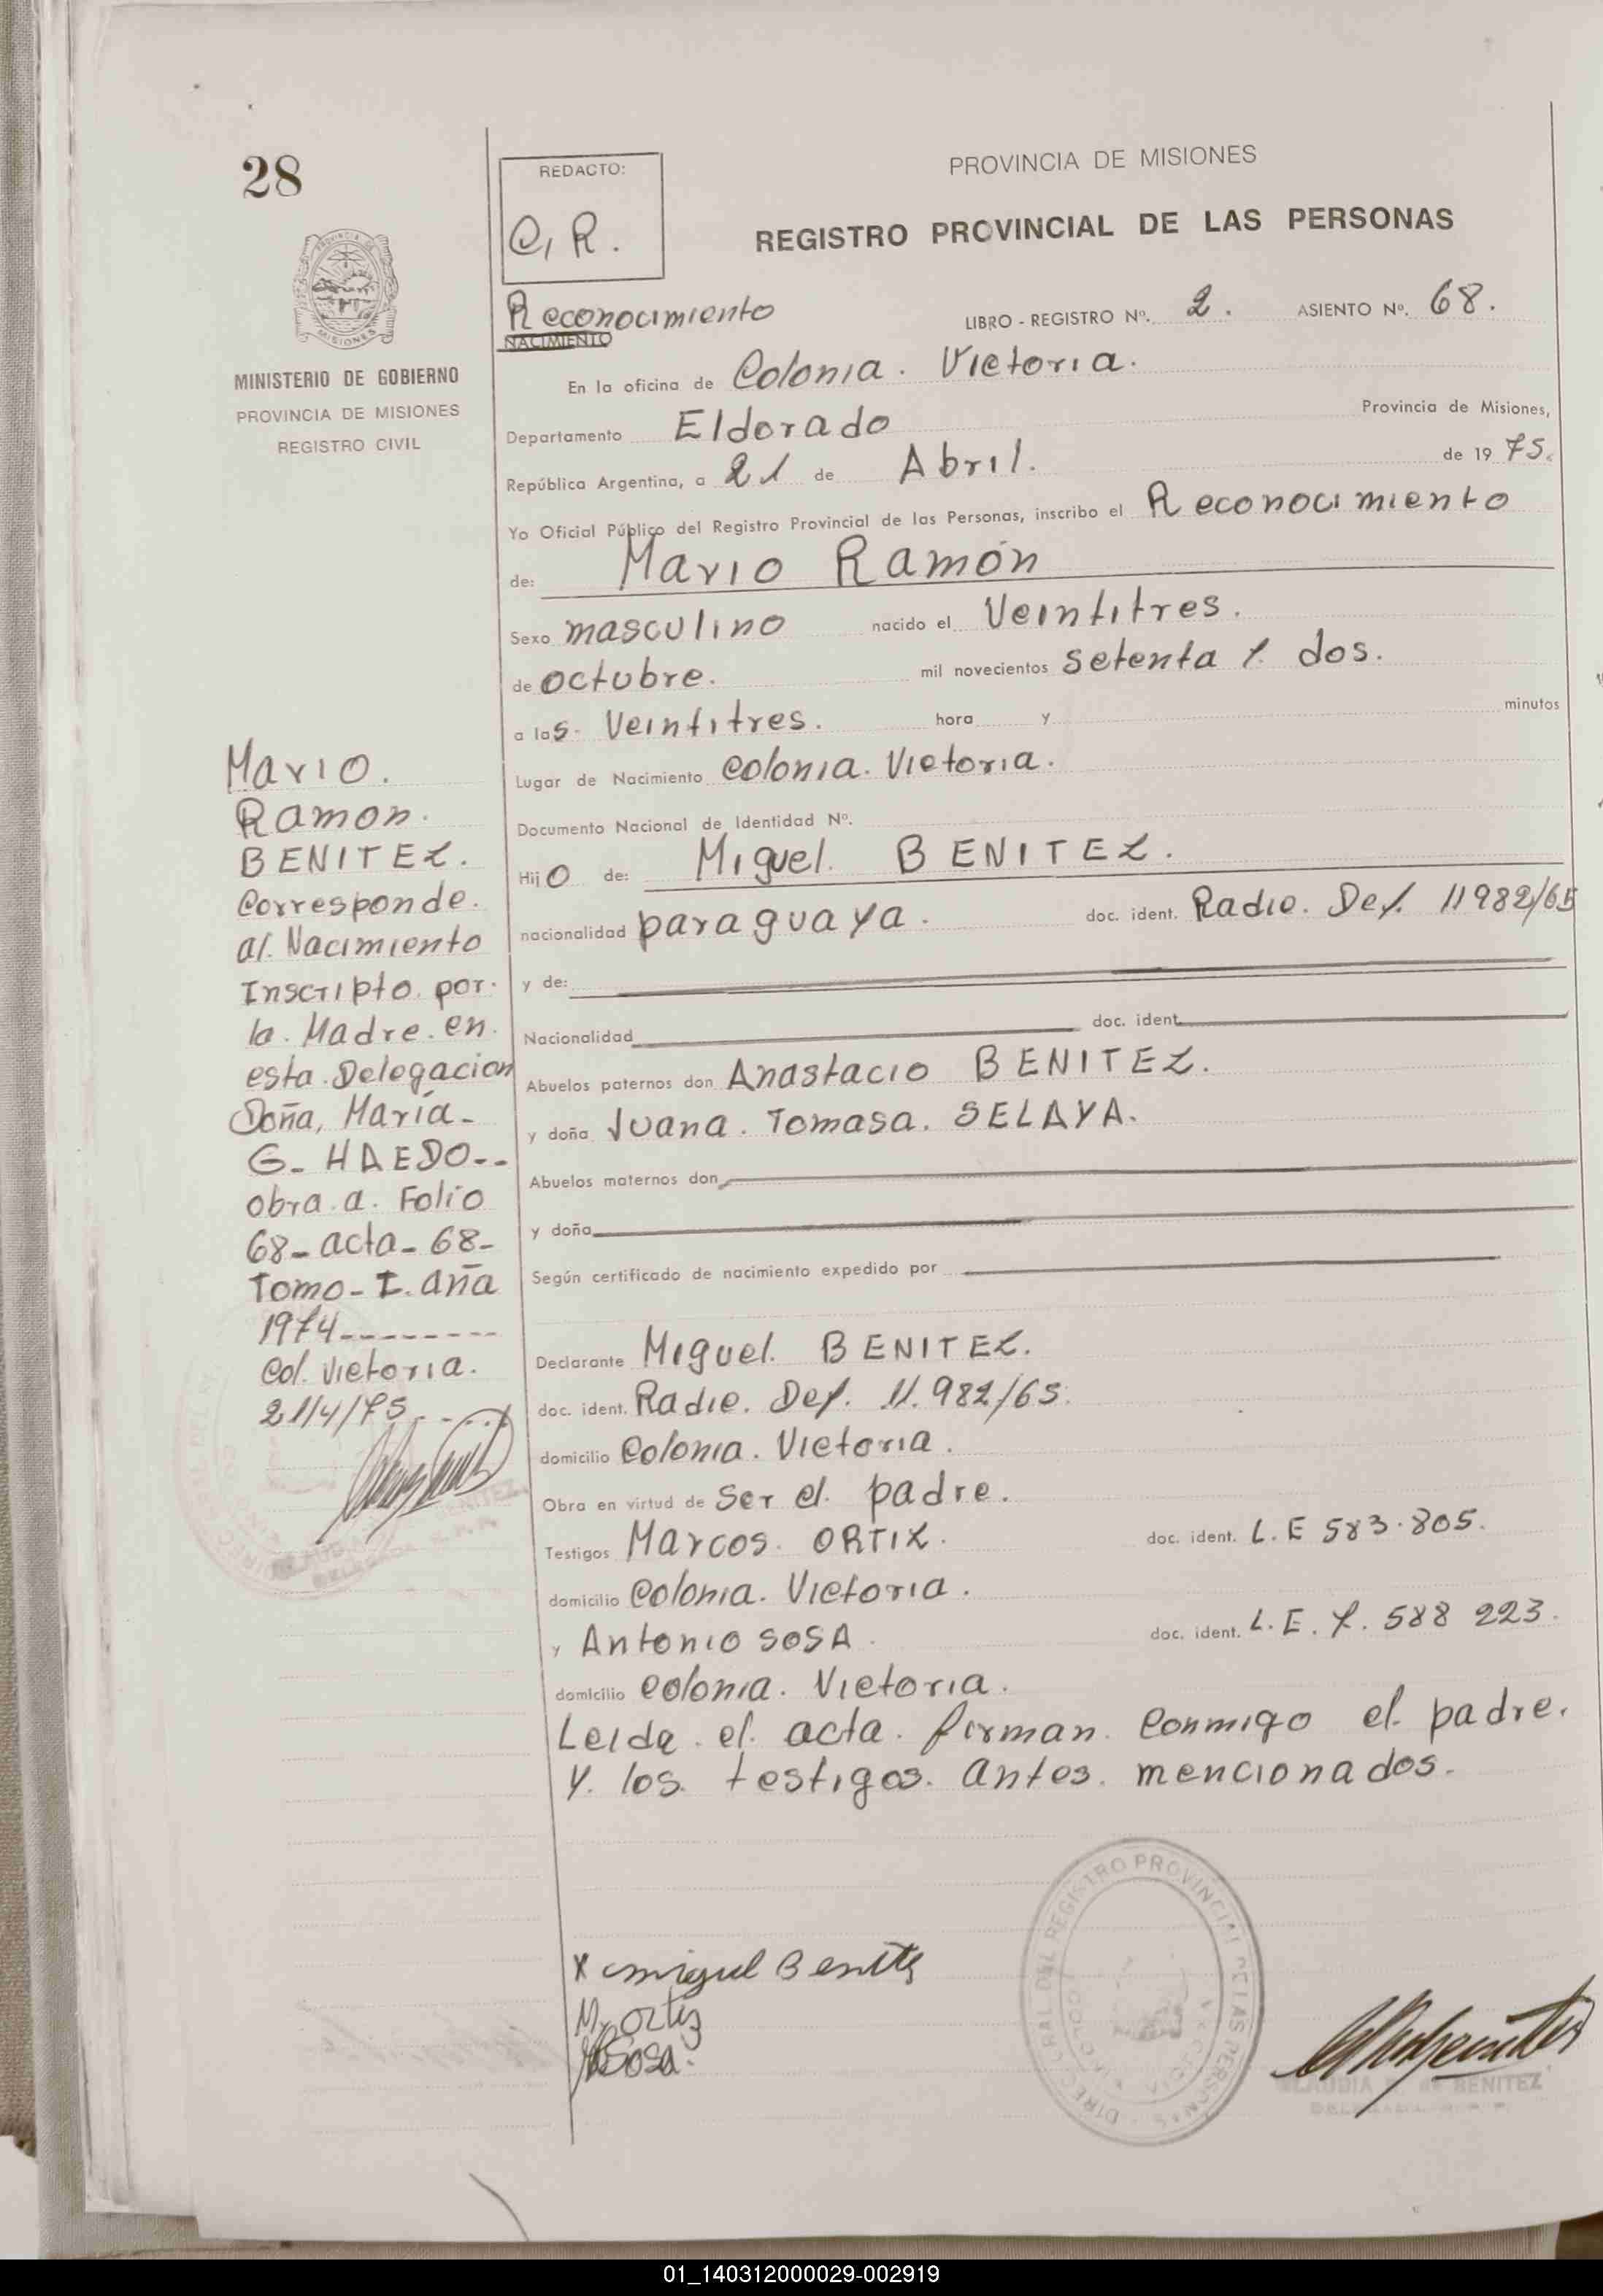 28
MINISTERIO DE GOBIERNO
PROVINCIA DE MISIONES
REGISTRO CIVIL
REDACTO:
C. R.
PROVINCIA DE MISIONES
REGISTRO PROVINCIAL DE LAS PERSONAS
Reconocimiento
NACIMIENTO
LIBRO - REGISTRO Nº. 2. ASIENTO Nº. 68.
En la oficina de Colonia. Victoria.
Departamento Eldorado Provincia de Misiones,
República Argentina, a 21 de Abril. de 19 75.
Yo Oficial Público del Registro Provincial de las Personas, inscribo el Reconocimiento
de: Mario Ramón
Sexo masculino nacido el Veintitres.
de octubre. mil novecientos setenta y. dos.
a las. Veintitres. hora y minutos
Lugar de Nacimiento Colonia. Victoria.
Documento Nacional de Identidad Nº.
Hijo de: Miguel. BENITEZ.
nacionalidad paraguaya. doc. ident. Radic. Def. 11982/65
y de:
Nacionalidad doc. ident.
Abuelos paternos don Anastacio BENITEZ.
y doña Juana. Tomasa. SELAYA.
Abuelos maternos don
y doña
Según certificado de nacimiento expedido por
Declarante Miguel. BENITEZ.
doc. ident. Radic. Def. 11.982/65.
domicilio Colonia. Victoria.
Obra en virtud de Ser el. padre.
Testigos Marcos. ORTIZ. doc. ident. L.E 583.805.
domicilio Colonia. Victoria.
y Antonio SOSA. doc. ident. L.E. 7. 588 223.
domicilio Colonia. Victoria.
Leida. el. acta. firman. Conmigo el. padre.
Y. los. testigos. Antes. mencionados.
Mario.
Ramon.
BENITEZ.
Corresponde.
al. Nacimiento
Inscripto. por.
la. Madre. en.
esta. Delegacion
Doña, María-
G- HAEDO--
obra. a. Folio
68- acta- 68-
Tomo- I. aña
1974---------
Col. Victoria.
21/4/75
x miguel Benitez
M. Ortiz
Sosa.
DIREC. GRAL DEL REGISTRO PROVINCIAL DE LAS PERSONAS
BENITEZ
01_140312000029-002919